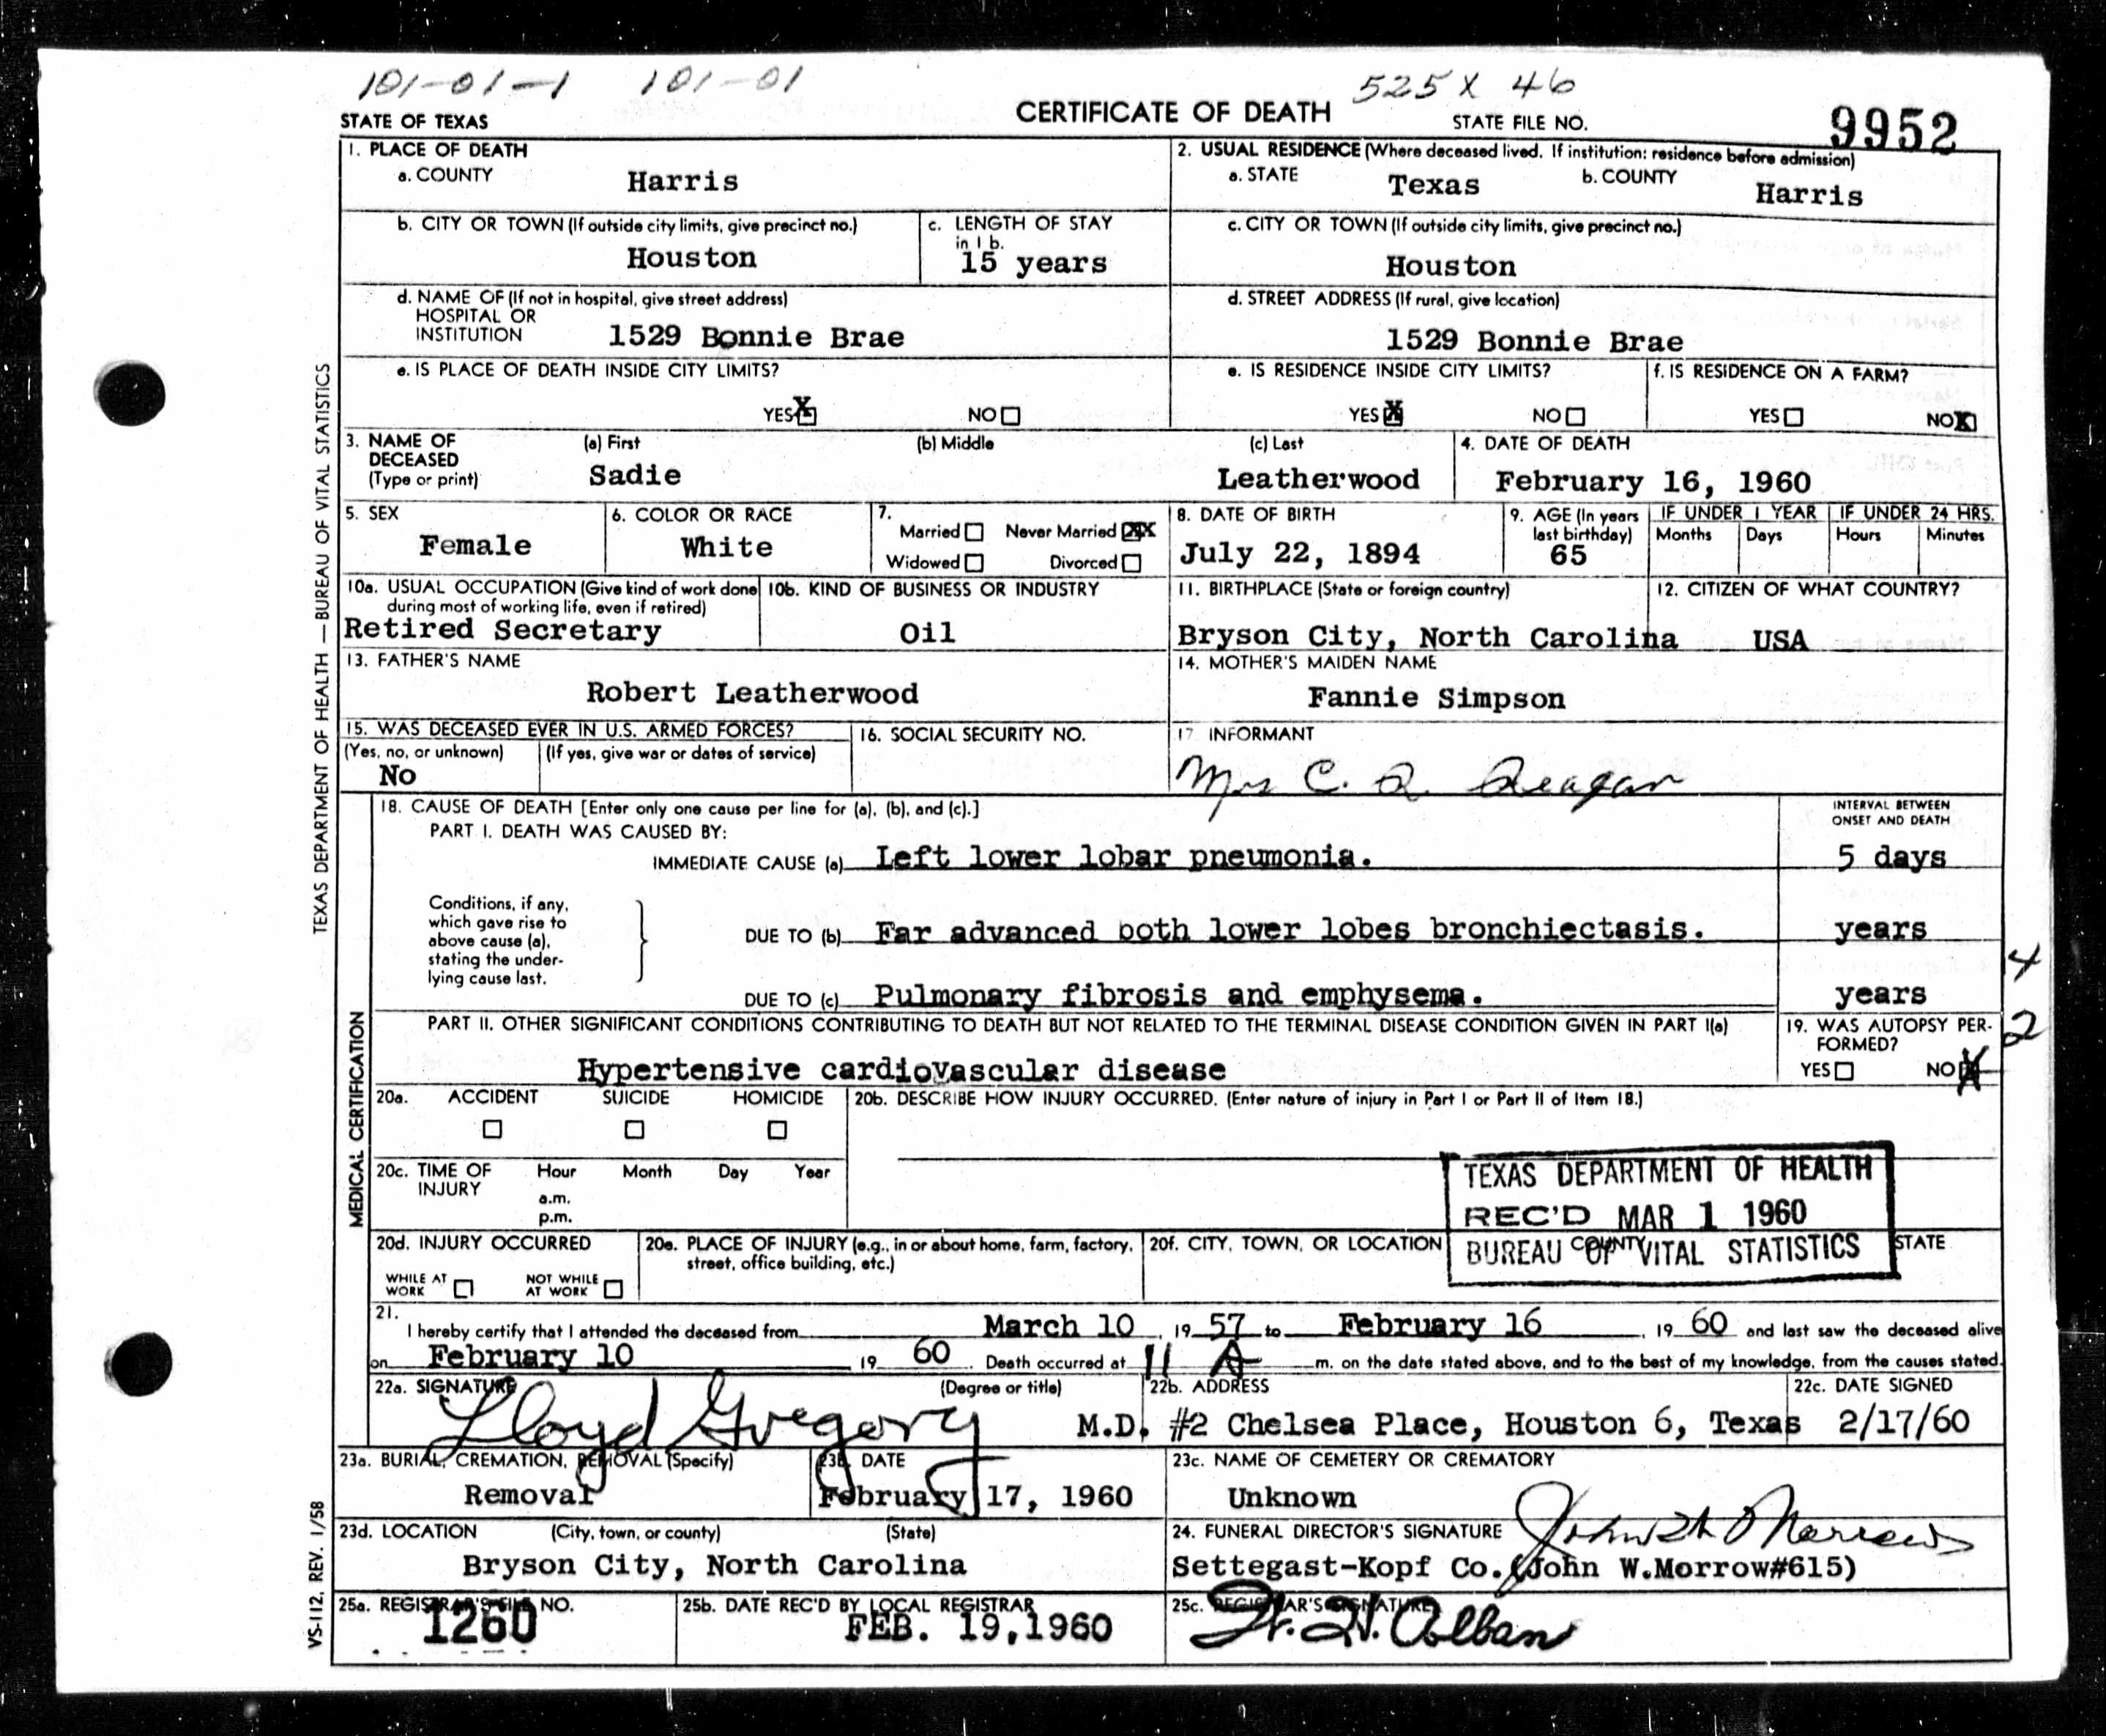 101-01-1 101-01 525 X 46
STATE OF TEXAS CERTIFICATE OF DEATH STATE FILE NO. 9952
1. PLACE OF DEATH
a. COUNTY Harris
2. USUAL RESIDENCE (Where deceased lived. If institution: residence before admission)
a. STATE Texas b. COUNTY Harris
b. CITY OR TOWN (If outside city limits, give precinct no.)
Houston
c. LENGTH OF STAY
in 1 b.
15 years
c. CITY OR TOWN (If outside city limits, give precinct no.)
Houston
d. NAME OF (If not in hospital, give street address)
HOSPITAL OR
INSTITUTION 1529 Bonnie Brae
d. STREET ADDRESS (If rural, give location)
1529 Bonnie Brae
e. IS PLACE OF DEATH INSIDE CITY LIMITS?
YES X NO
e. IS RESIDENCE INSIDE CITY LIMITS?
YES X NO
f. IS RESIDENCE ON A FARM?
YES NO X
3. NAME OF DECEASED (Type or print)
(a) First (b) Middle (c) Last
Sadie Leatherwood
4. DATE OF DEATH
February 16, 1960
5. SEX
Female
6. COLOR OR RACE
White
7.
Married Never Married XX
Widowed Divorced
8. DATE OF BIRTH
July 22, 1894
9. AGE (In years
last birthday)
65
IF UNDER 1 YEAR IF UNDER 24 HRS.
Months Days Hours Minutes
10a. USUAL OCCUPATION (Give kind of work done
during most of working life, even if retired)
Retired Secretary
10b. KIND OF BUSINESS OR INDUSTRY
Oil
11. BIRTHPLACE (State or foreign country)
Bryson City, North Carolina
12. CITIZEN OF WHAT COUNTRY?
USA
13. FATHER'S NAME
Robert Leatherwood
14. MOTHER'S MAIDEN NAME
Fannie Simpson
15. WAS DECEASED EVER IN U.S. ARMED FORCES?
(Yes, no, or unknown) (If yes, give war or dates of service)
No
16. SOCIAL SECURITY NO.
17 INFORMANT
Mrs C. Reagan
18. CAUSE OF DEATH [Enter only one cause per line for (a), (b), and (c).]
PART I. DEATH WAS CAUSED BY:
INTERVAL BETWEEN
ONSET AND DEATH
IMMEDIATE CAUSE (a) Left lower lobar pneumonia. 5 days
Conditions, if any,
which gave rise to
above cause (a),
stating the under-
lying cause last.
DUE TO (b) Far advanced both lower lobes bronchiectasis. years
4
DUE TO (c) Pulmonary fibrosis and emphysema. years
PART II. OTHER SIGNIFICANT CONDITIONS CONTRIBUTING TO DEATH BUT NOT RELATED TO THE TERMINAL DISEASE CONDITION GIVEN IN PART I(a)
Hypertensive cardiovascular disease
19. WAS AUTOPSY PER-
FORMED?
2
YES NO X
20a. ACCIDENT SUICIDE HOMICIDE
20b. DESCRIBE HOW INJURY OCCURRED. (Enter nature of injury in Part I or Part II of Item 18.)
20c. TIME OF INJURY Hour Month Day Year
a.m.
p.m.
TEXAS DEPARTMENT OF HEALTH
REC'D MAR 1 1960
BUREAU OF VITAL STATISTICS
20d. INJURY OCCURRED
WHILE AT WORK NOT WHILE AT WORK
20e. PLACE OF INJURY (e.g., in or about home, farm, factory,
street, office building, etc.)
20f. CITY, TOWN, OR LOCATION COUNTY STATE
21.
I hereby certify that I attended the deceased from March 10, 19 57 to February 16, 19 60 and last saw the deceased alive
on February 10 19 60. Death occurred at 11 A m. on the date stated above, and to the best of my knowledge, from the causes stated.
22a. SIGNATURE (Degree or title)
Lloyd Gregory M.D.
22b. ADDRESS
#2 Chelsea Place, Houston 6, Texas
22c. DATE SIGNED
2/17/60
23a. BURIAL, CREMATION, REMOVAL (Specify)
Removal
23b. DATE
February 17, 1960
23c. NAME OF CEMETERY OR CREMATORY
Unknown
23d. LOCATION (City, town, or county) (State)
Bryson City, North Carolina
24. FUNERAL DIRECTOR'S SIGNATURE John W Morrow
Settegast-Kopf Co. (John W.Morrow#615)
25a. REGISTRAR'S FILE NO.
1260
25b. DATE REC'D BY LOCAL REGISTRAR
FEB. 19,1960
25c. REGISTRAR'S SIGNATURE
H. Alban
TEXAS DEPARTMENT OF HEALTH — BUREAU OF VITAL STATISTICS
MEDICAL CERTIFICATION
VS-112, REV. 1/58